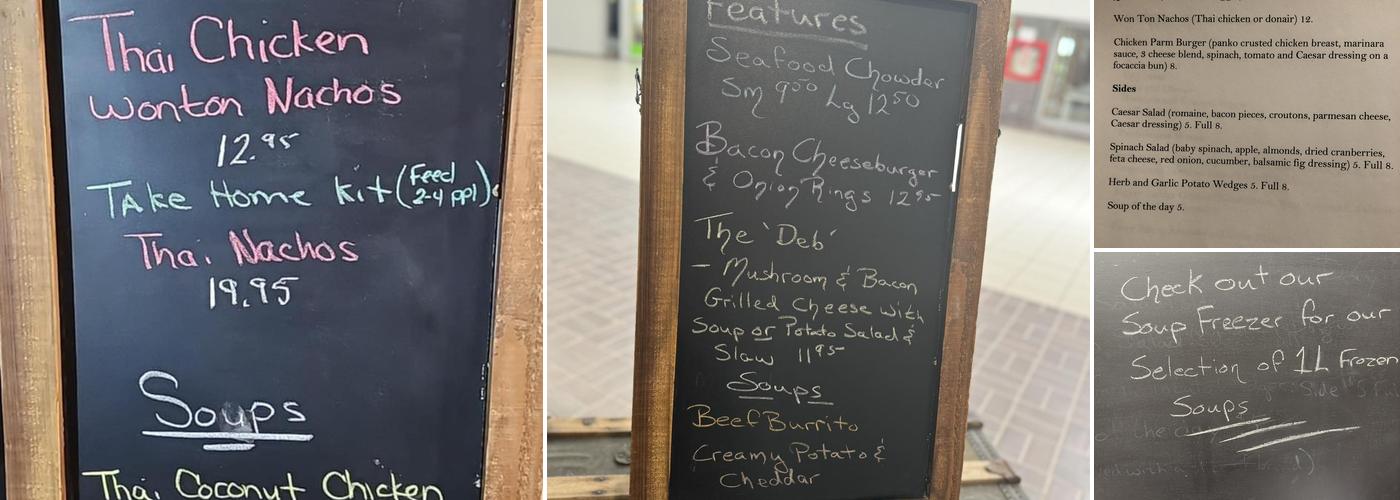 Thai Chicken
Wonton Nachos
12.95
Take Home Kit (Feed 2-4 ppl)
Thai Nachos
19.95
Soups
Thai Coconut Chicken
Features
Seafood Chowder
Sm 9.50 Lg 12.50
Bacon Cheeseburger
& Onion Rings 12.95
The 'Deb'
- Mushroom & Bacon
Grilled Cheese with
Soup or Potato Salad &
Slaw 11.95
Soups
Beef Burrito
Creamy Potato &
Cheddar
Won Ton Nachos (Thai chicken or donair) 12.
Chicken Parm Burger (panko crusted chicken breast, marinara
sauce, 3 cheese blend, spinach, tomato and Caesar dressing on a
focaccia bun) 8.
Sides
Caesar Salad (romaine, bacon pieces, croutons, parmesan cheese,
Caesar dressing) 5. Full 8.
Spinach Salad (baby spinach, apple, almonds, dried cranberries,
feta cheese, red onion, cucumber, balsamic fig dressing) 5. Full 8.
Herb and Garlic Potato Wedges 5. Full 8.
Soup of the day 5.
Check out our
Soup Freezer for our
Selection of 1L Frozen
Soups